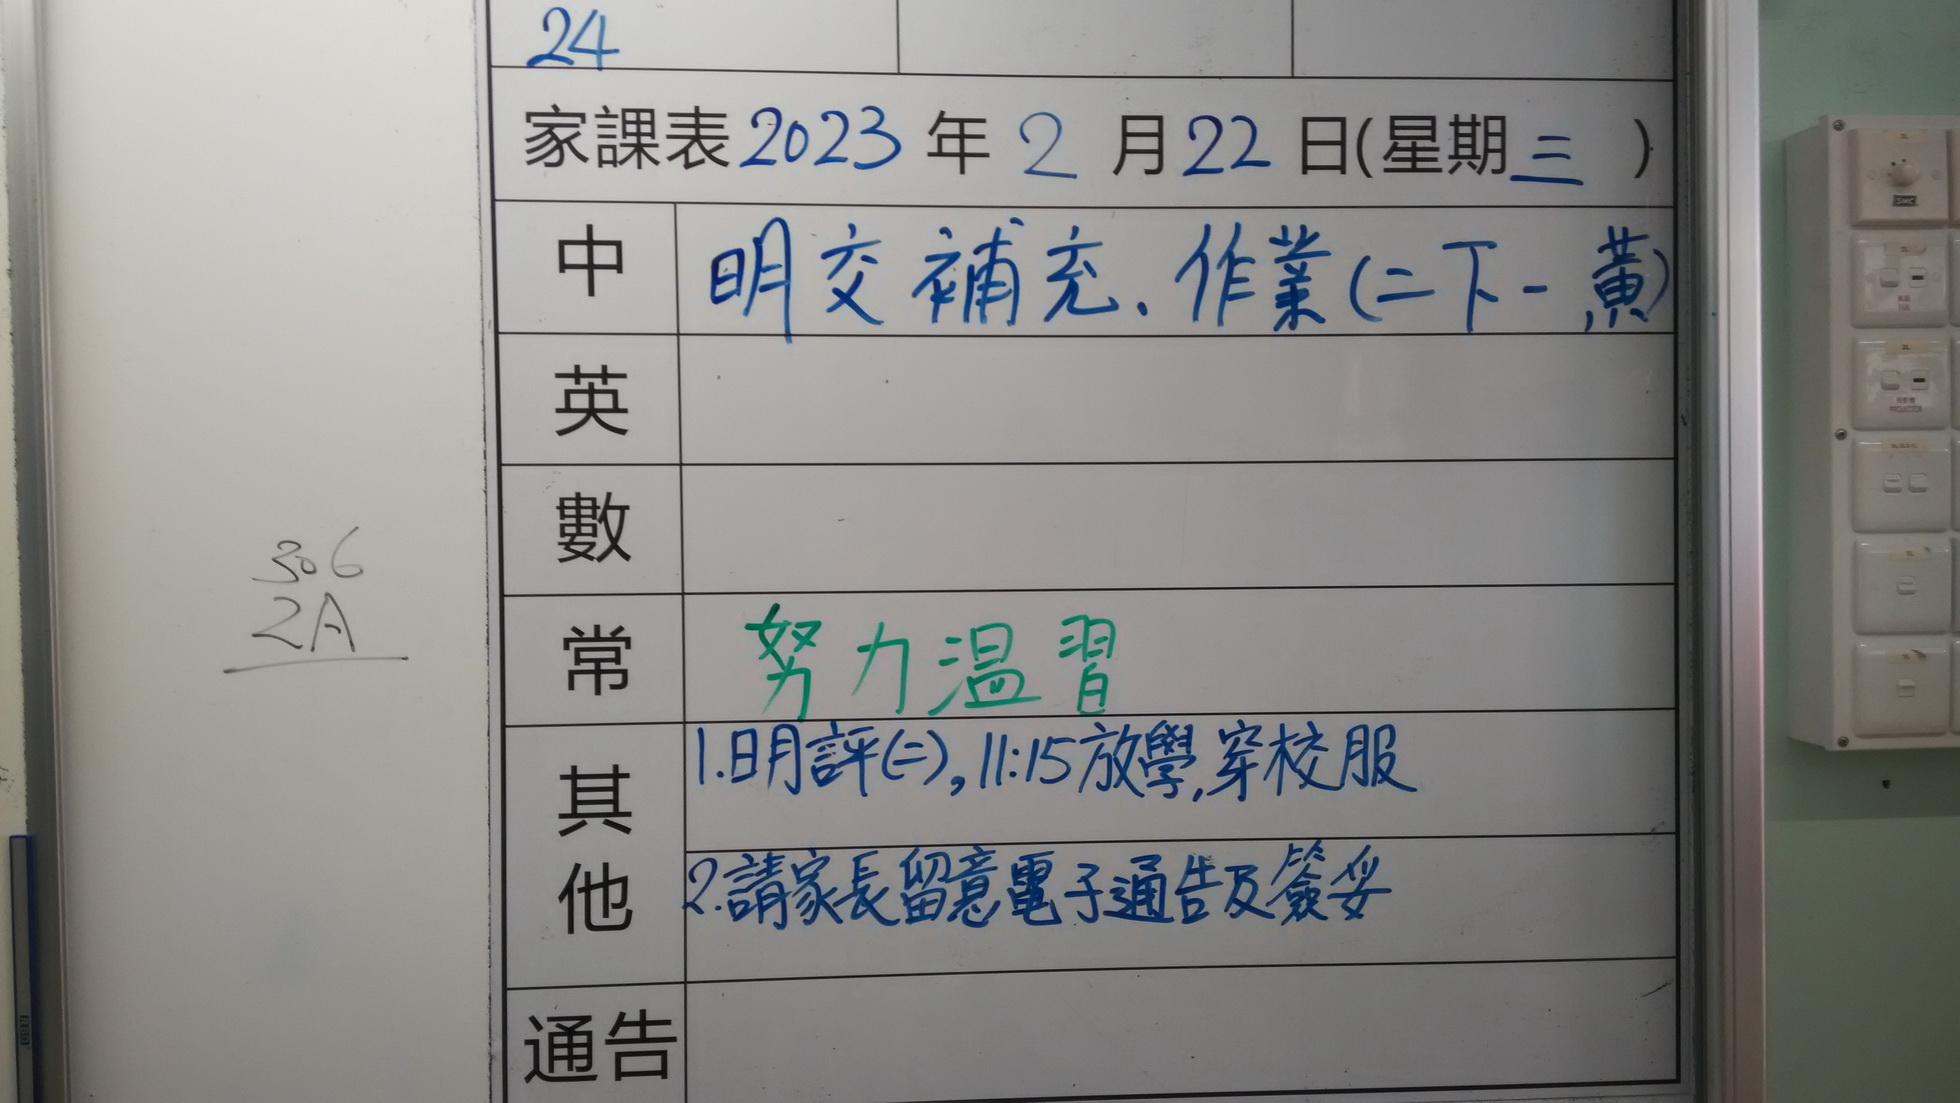 24
家課表2023年2月22日(星期三)
中 明交補充、作業(二下一,黃)
英
數
常 努力溫習
其他 1.明評(二),11:15放學,穿校服
2.請家長留意電子通告及簽妥
通告
306
2A
PROJECTOR